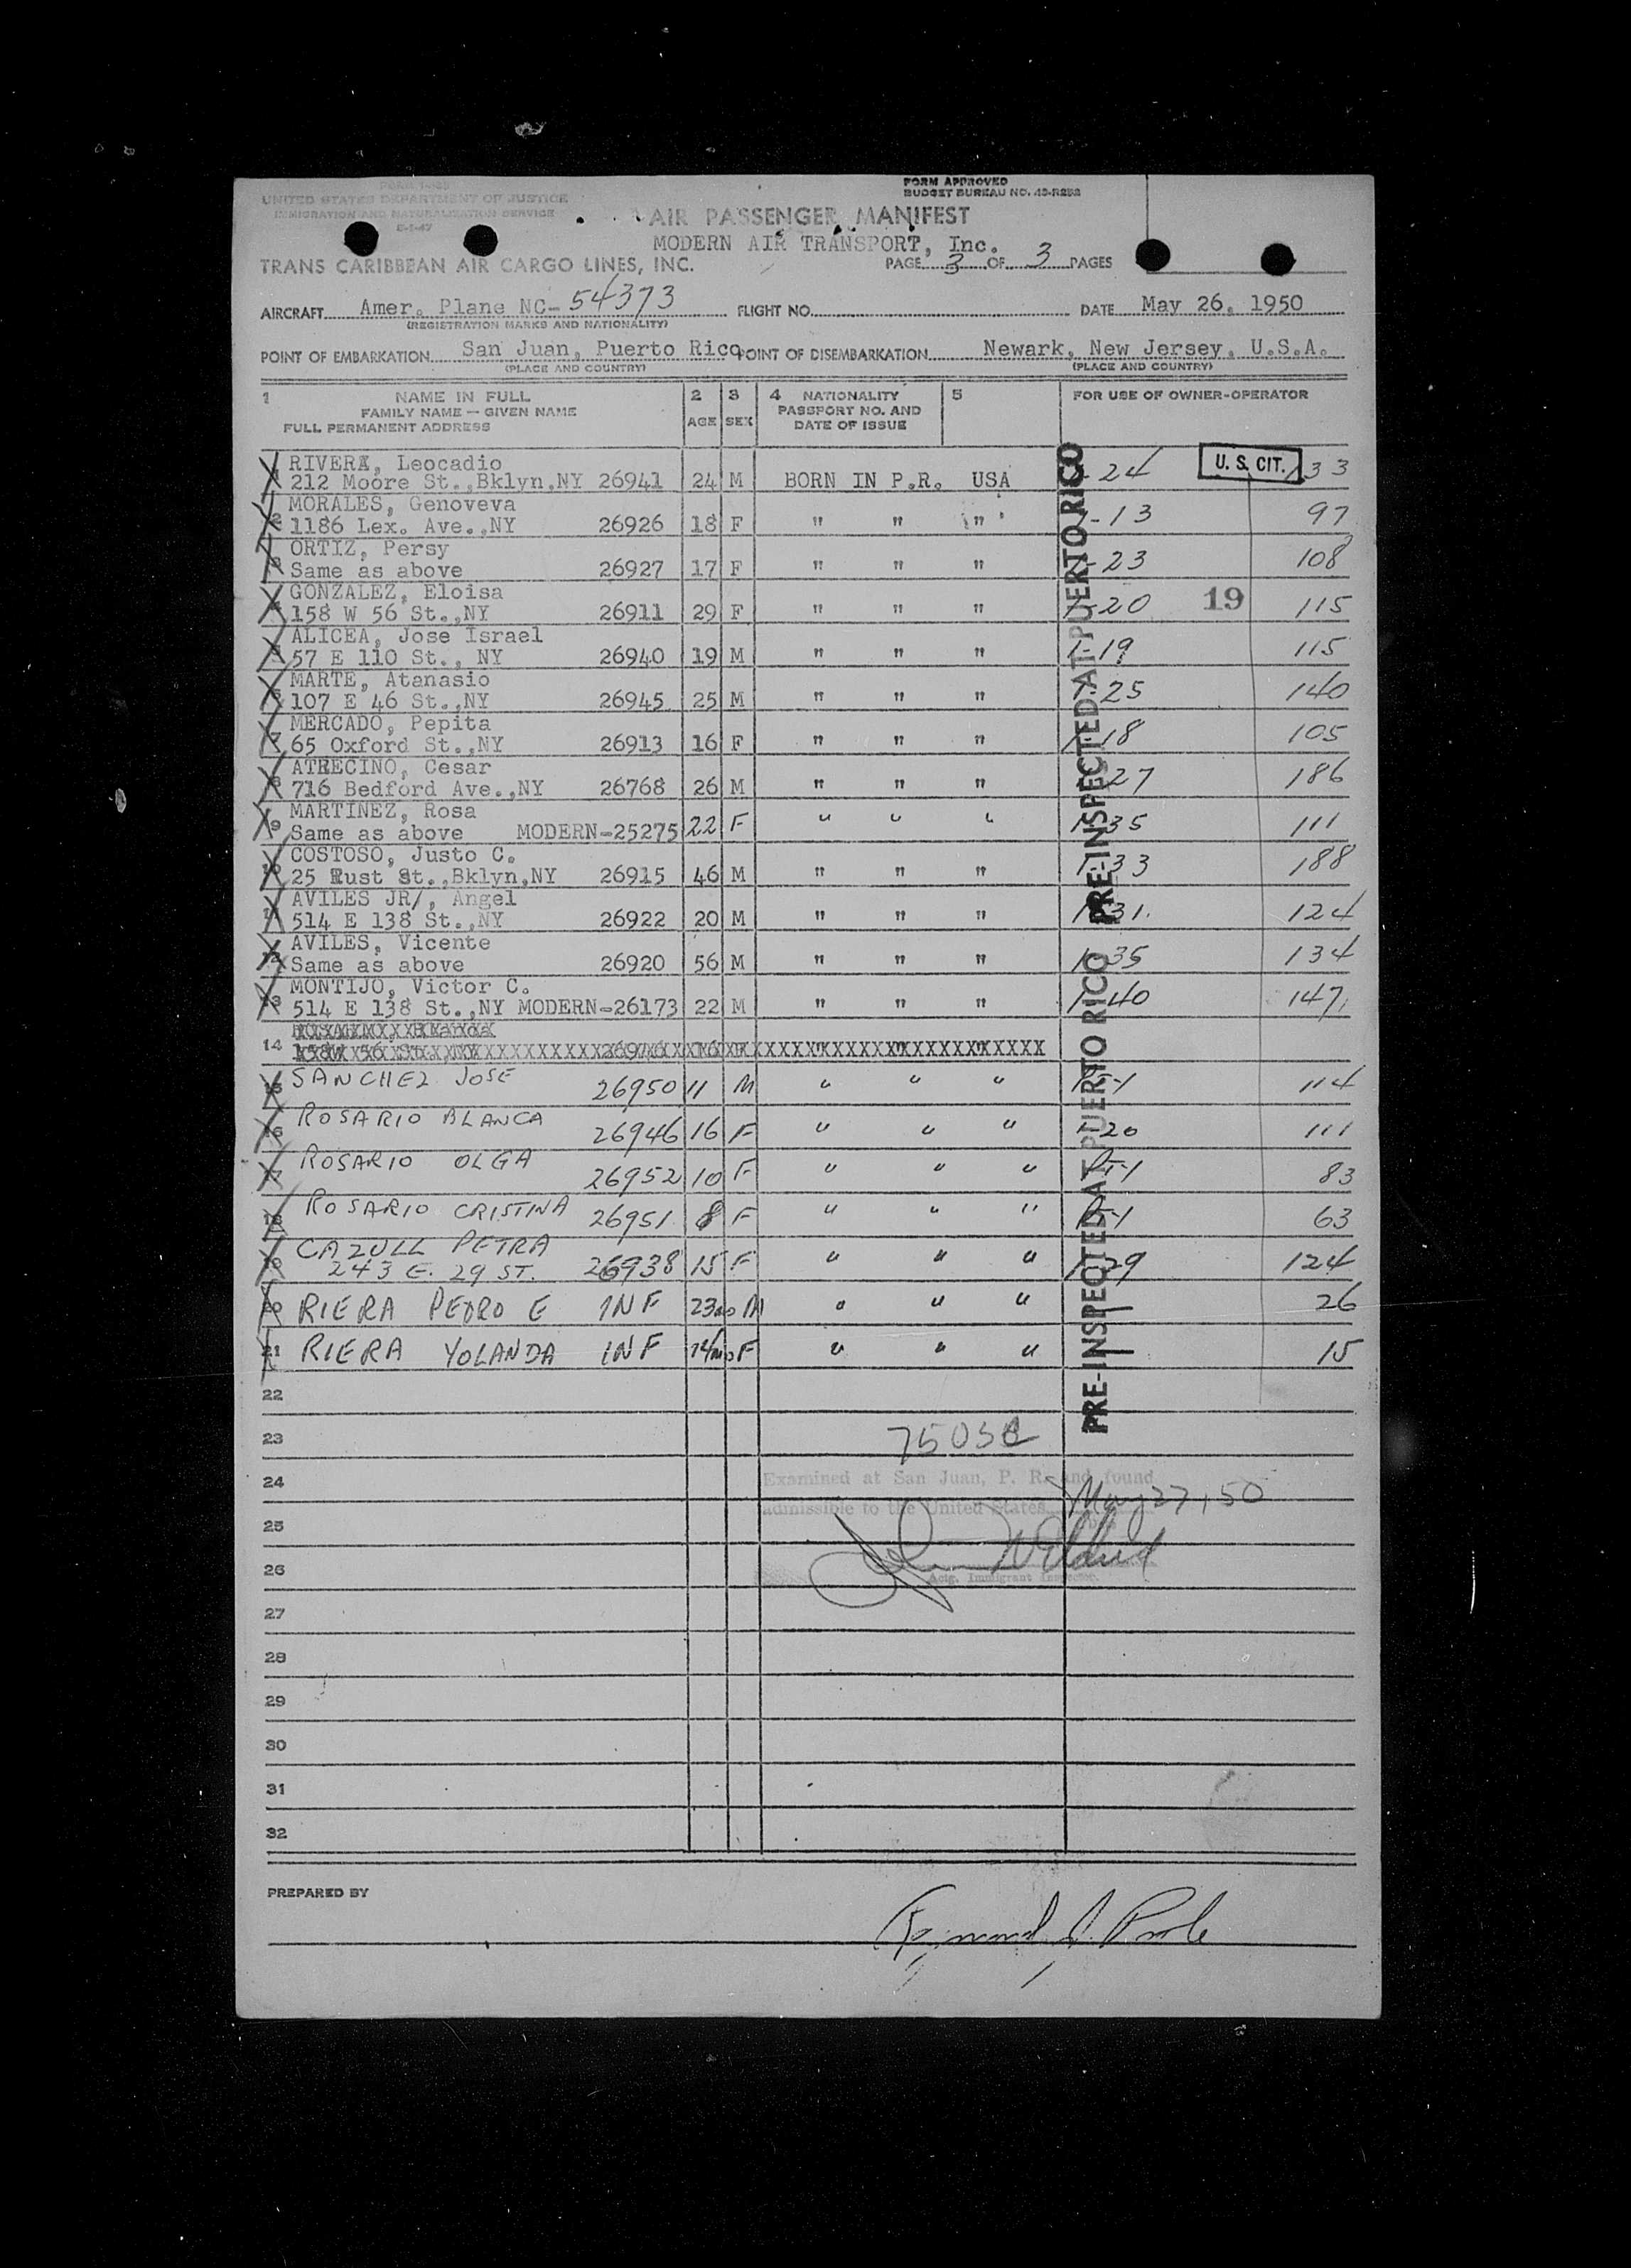 FORM I-466
UNITED STATES DEPARTMENT OF JUSTICE
IMMIGRATION AND NATURALIZATION SERVICE
FORM APPROVED
BUDGET BUREAU NO. 43-R252
AIR PASSENGER MANIFEST
MODERN AIR TRANSPORT, Inc.
TRANS CARIBBEAN AIR CARGO LINES, INC.
PAGE 3 OF 3 PAGES
AIRCRAFT Amer. Plane NC-54373 FLIGHT NO. DATE May 26, 1950
(REGISTRATION MARKS AND NATIONALITY)
POINT OF EMBARKATION San Juan, Puerto Rico POINT OF DISEMBARKATION Newark, New Jersey, U.S.A.
(PLACE AND COUNTRY) (PLACE AND COUNTRY)
1 NAME IN FULL 2 3 4 NATIONALITY 5 FOR USE OF OWNER-OPERATOR
FAMILY NAME — GIVEN NAME AGE SEX PASSPORT NO. AND
FULL PERMANENT ADDRESS DATE OF ISSUE
RIVERA, Leocadio
1 212 Moore St.,Bklyn,NY 26941 24 M BORN IN P.R. USA 24 U. S. CIT. 133
MORALES, Genoveva
2 1186 Lex. Ave.,NY 26926 18 F " " " -13 97
ORTIZ, Persy
3 Same as above 26927 17 F " " " -23 108
GONZALEZ, Eloisa
4 158 W 56 St.,NY 26911 29 F " " " 1-20 19 115
ALICEA, Jose Israel
5 57 E 110 St., NY 26940 19 M " " " 1-19 115
MARTE, Atanasio
6 107 E 46 St.,NY 26945 25 M " " " 25 140
MERCADO, Pepita
7 65 Oxford St.,NY 26913 16 F " " " 1-18 105
ATRECINO, Cesar
8 716 Bedford Ave.,NY 26768 26 M " " " 27 186
MARTINEZ, Rosa
9 Same as above MODERN-25275 22 F " " " 1-35 111
COSTOSO, Justo C.
10 25 Rust St.,Bklyn,NY 26915 46 M " " " 1-33 188
AVILES JR/, Angel
11 514 E 138 St.,NY 26922 20 M " " " 1-31. 124
AVILES, Vicente
12 Same as above 26920 56 M " " " 1-35 134
MONTIJO, Victor C.
13 514 E 138 St.,NY MODERN-26173 22 M " " " 1-40 147
14
15 SANCHEZ JOSE 26950 11 M " " " 114
16 ROSARIO BLANCA 26946 16 F " " " 1-20 111
17 ROSARIO OLGA 26952 10 F " " " 83
18 ROSARIO CRISTINA 26951 8 F " " " 63
CAZULL PETRA
19 243 E. 29 ST. 26938 15 F " " " 1-29 124
20 RIERA PEDRO E INF 23mo M " " " 26
21 RIERA YOLANDA INF 14/mo F " " " 15
PRE-INSPECTED AT PUERTO RICO
PRE-INSPECTED AT PUERTO RICO
22
23
24 Examined at San Juan, P. R. and found
admissible to the United States May 27, 50
25
26
Actg. Immigrant Inspector.
27
28
29
30
31
32
PREPARED BY